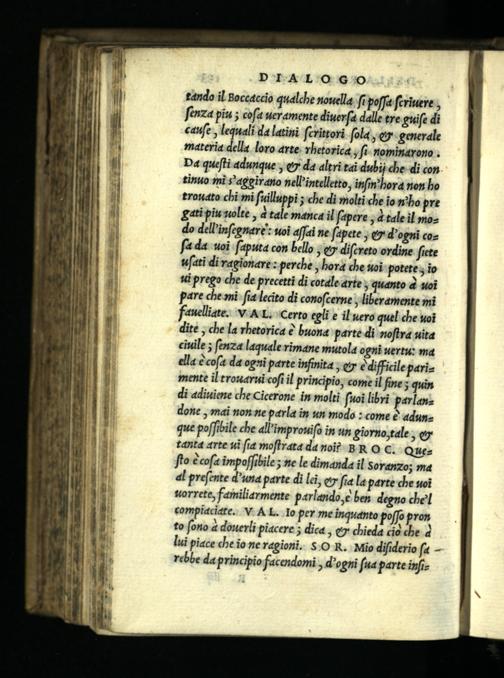 DIALOGO
tando il Boccaccio qualche nouella si possa scriuere,
senza piu; cosa ueramente diuersa dalle tre guise di
cause, lequali da latini scrittori sola, & generale
materia della loro arte rhetorica, si nominarono.
Da questi adunque, & da altri tai dubij che di con
tinuo mi s'aggirano nell'intelletto, insin'hora non ho
trouato chi mi suiluppi; che di molti che io n'ho pre
gati piu uolte, à tale manca il sapere, à tale il mo=
do dell'insegnare: uoi assai ne sapete, & d'ogni co=
sa da uoi saputa con bello, & discreto ordine siete
usati di ragionare: perche, hora che uoi potete, io
ui prego che de precetti di cotale arte, quanto à uoi
pare che mi sia lecito di conoscerne, liberamente mi
fauelliate. VAL. Certo egli e il uero quel che uoi
dite, che la rhetorica è buona parte di nostra uita
ciuile; senza laquale rimane mutola ogni uertu: ma
ella è cosa da ogni parte infinita, & è difficile pari=
mente il trouarui cosi il principio, come il fine; quin
di adiuiene che Cicerone in molti suoi libri parlan=
done, mai non ne parla in un modo: come è adun=
que possibile che all'improuiso in un giorno, tale, &
tanta arte ui sia mostrata da noi? BROC. Que=
sto è cosa impossibile; ne le dimanda il Soranzo; ma
al presente d'una parte di lei, & sia la parte che uoi
uorrete, familiarmente parlando, è ben degno che'l
compiaciate. VAL. Io per me inquanto posso pron
to sono à douerli piacere; dica, & chieda ciò che à
lui piace che io ne ragioni. SOR. Mio disiderio sa=
rebbe da principio facendomi, d'ogni sua parte insi=